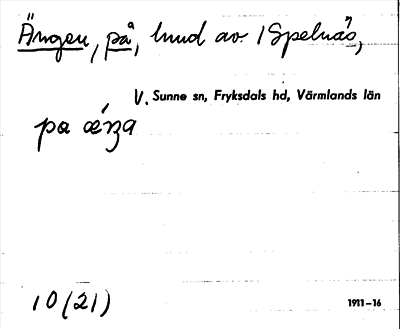 Ängen, på, hmd av 1 Spelnäs,
V. Sunne sn, Fryksdals hd, Värmlands län
pa ǽŋa
10 (21) 1911–16